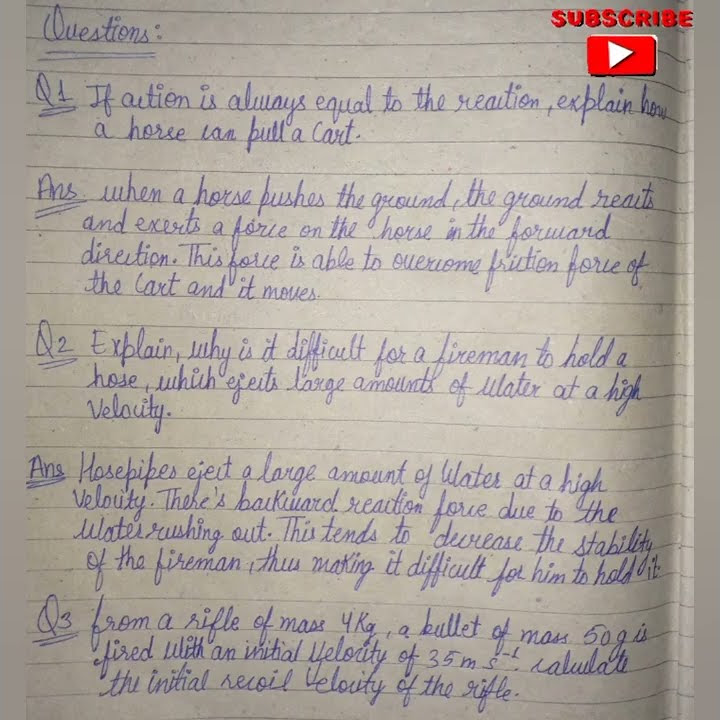 Questions:
SUBSCRIBE
Q1 If action is always equal to the reaction, explain how
a horse can pull a Cart.
Ans when a horse pushes the ground, the ground reacts
and exerts a force on the horse in the forward
direction. This force is able to overcome friction force of
the Cart and it moves.
Q2 Explain, why is it difficult for a fireman to hold a
hose, which ejects large amounts of Water at a high
Velocity.
Ans Hosepipes eject a large amount of Water at a high
Velocity. There's backward reaction force due to the
Water rushing out. This tends to decrease the stability
of the fireman, thus making it difficult for him to hold it.
Q3 from a rifle of mass 4Kg, a bullet of mass 50g is
fired with an initial Velocity of 35 m s⁻¹. calculate
the initial recoil Velocity of the rifle.